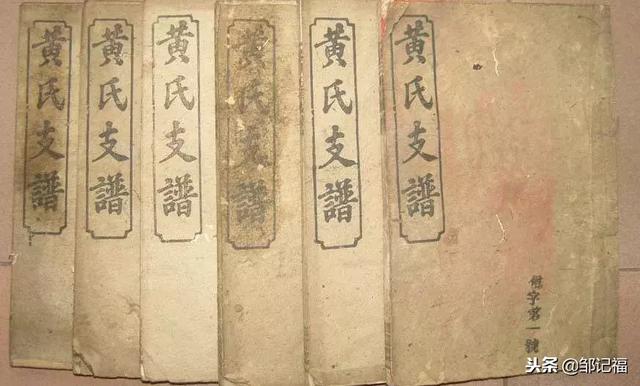 黄氏支譜
黄氏支譜
黄氏支譜
黄氏支譜
黄氏支譜
黄氏支譜
字第一號
头条 @邹记福